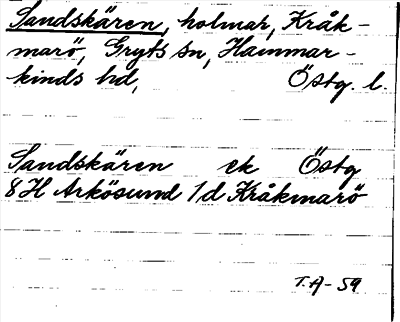 Sandskären, holmar, Kråk-
marö, Gryts sn, Hammar-
kinds hd, Östg. l.
Sandskären ek Östg
8H Arkösund 1d Kråkmarö
T.A-59